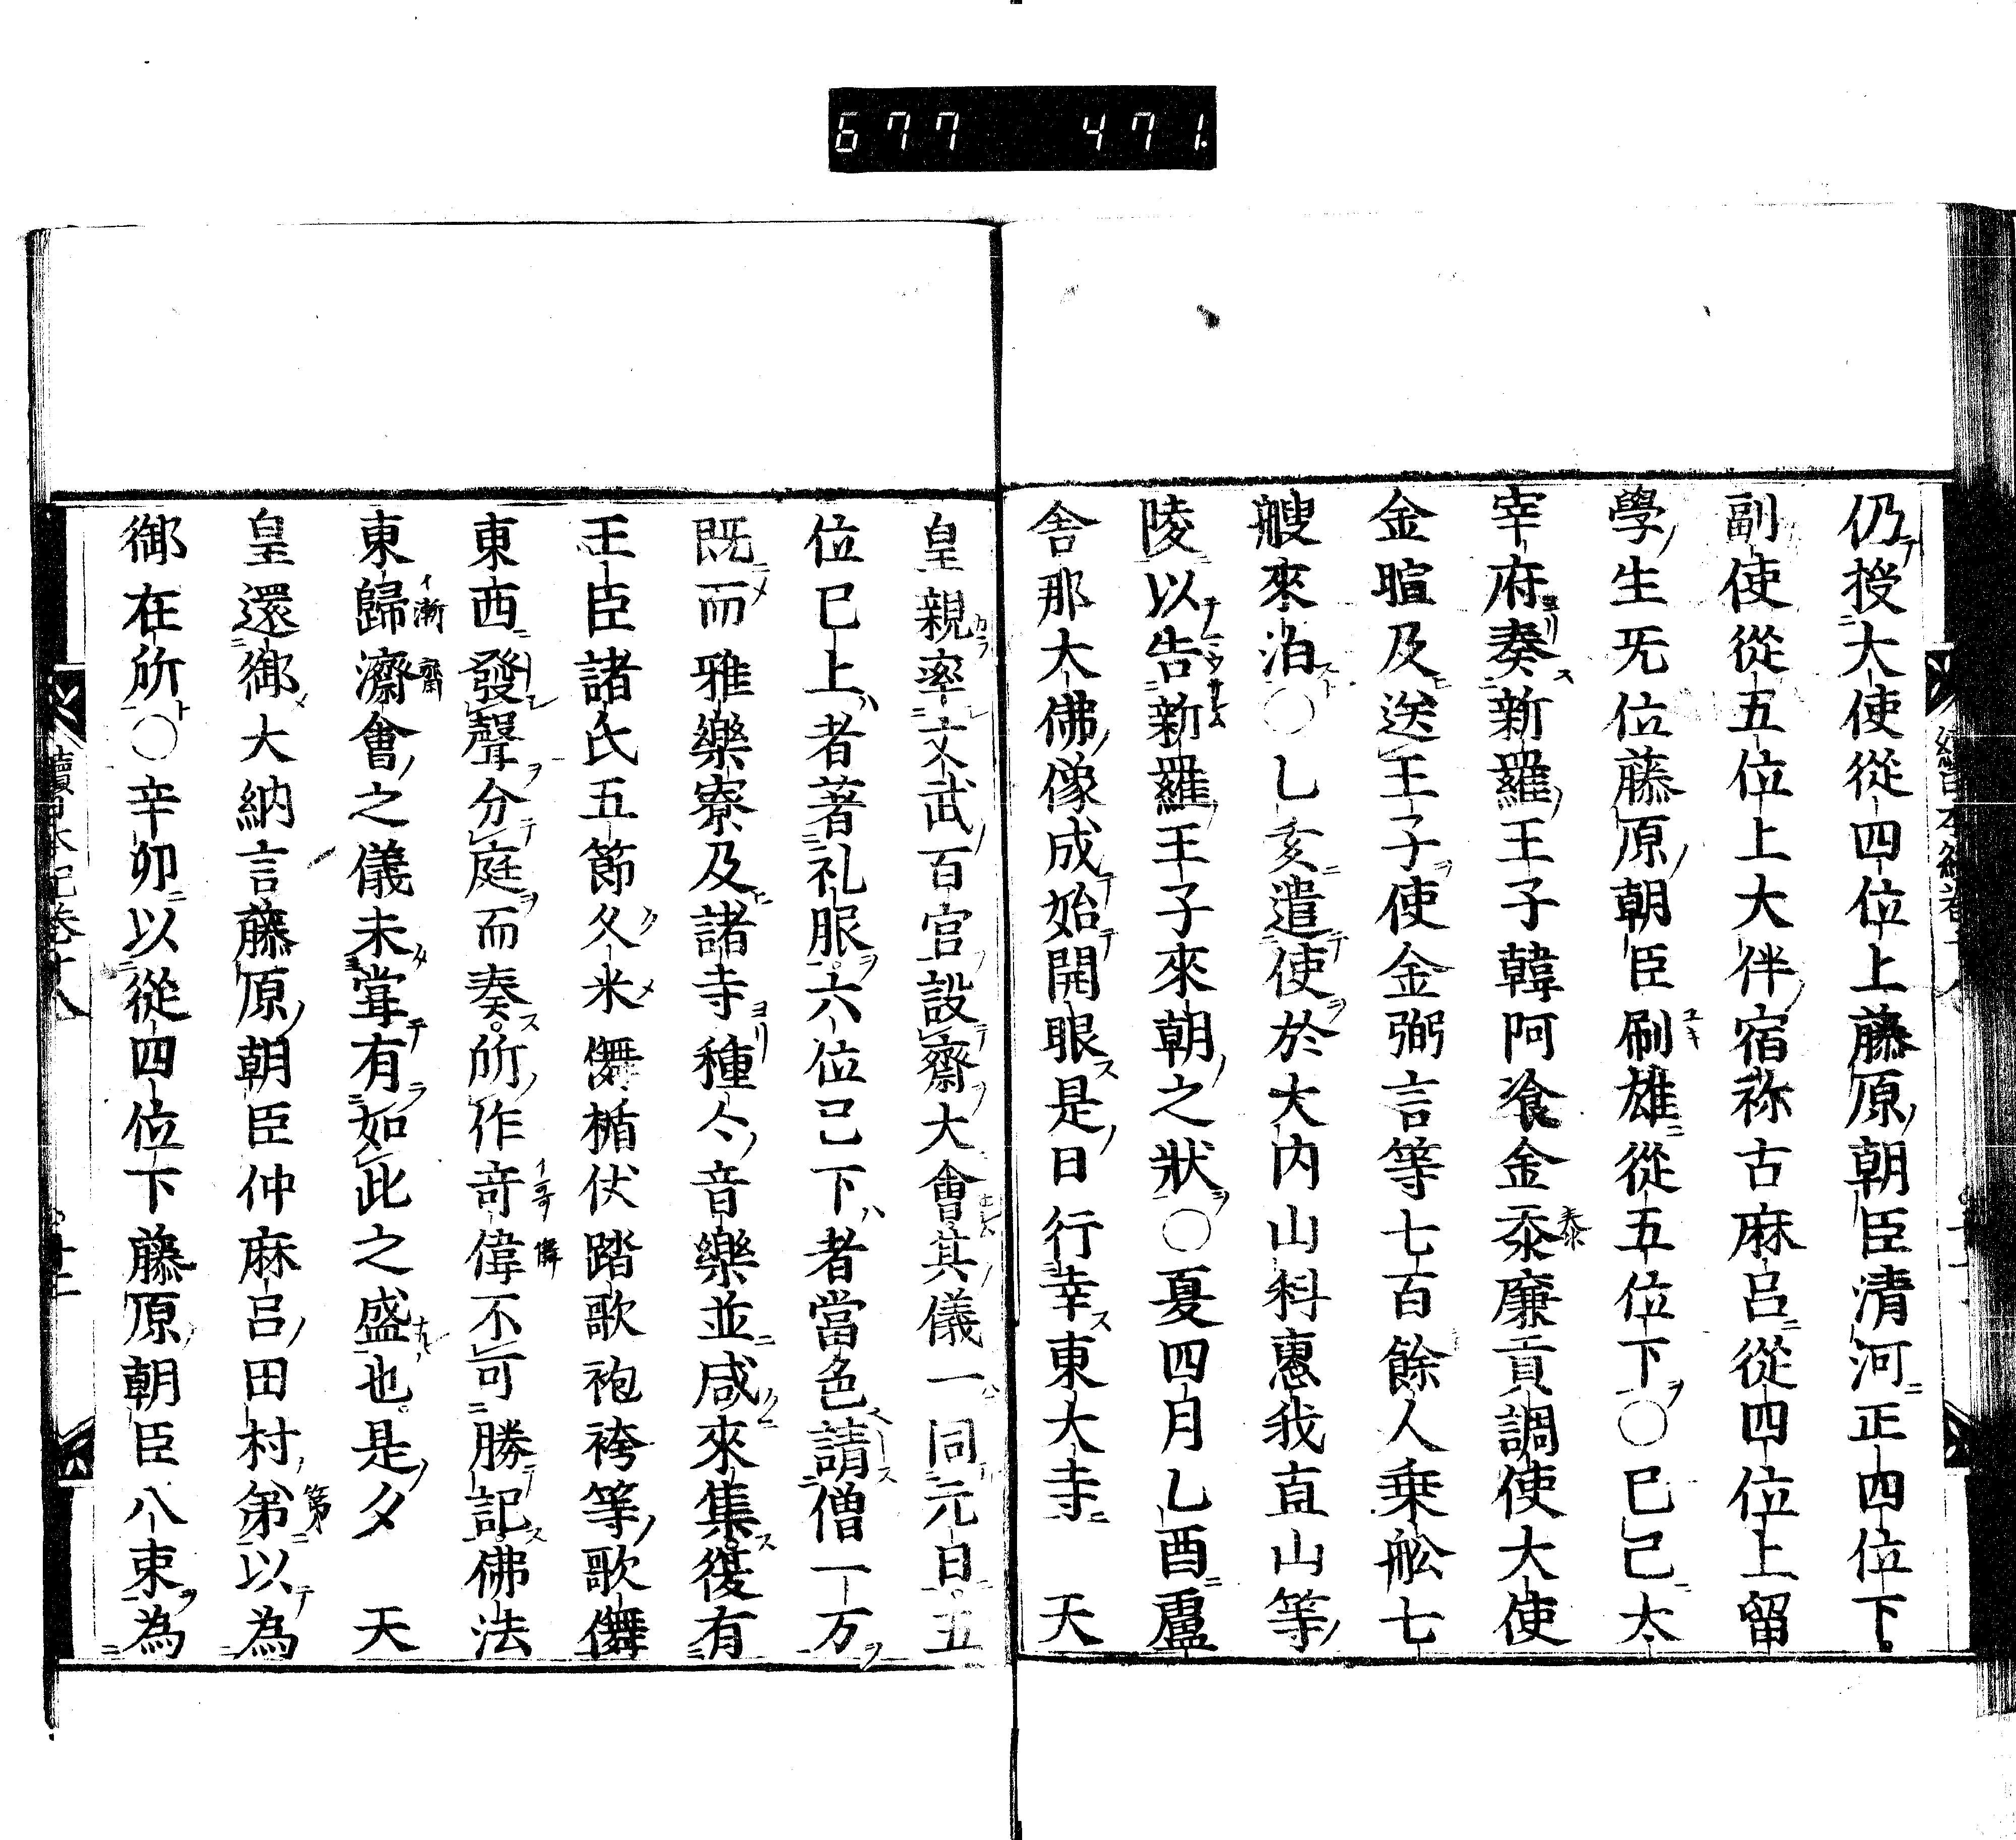 677 471.
仍授大使從四位上藤原朝臣清河正四位下
副使從五位上大伴宿祢古麻呂從四位上留
學生旡位藤原朝臣刷雄從五位下○巳己太
宰府奏新羅王子韓阿飡金泰廉貢調使大使
金暄及送王子使金弼言等七百餘人乗舩七
艘來泊○乙亥遣使於大内山科惠我直山等
陵以告新羅王子來朝之狀○夏四月乙酉盧
舎那大佛像成始開眼是日行幸東大寺 天
皇親率文武百官設齋大會其儀一同元日五
位已上者著礼服六位己下者當色請僧一万
既而雅樂寮及諸寺種々音樂並咸來集復有
王臣諸氏五節久米儛楯伏踏歌袍袴等歌儛
東西發聲分庭而奏所作竒偉不可勝記佛法
東歸濟會之儀未甞有如此之盛也是夕 天
皇還御大納言藤原朝臣仲麻呂田村第以為
御在所○辛卯以從四位下藤原朝臣八束為
續日本紀卷十八